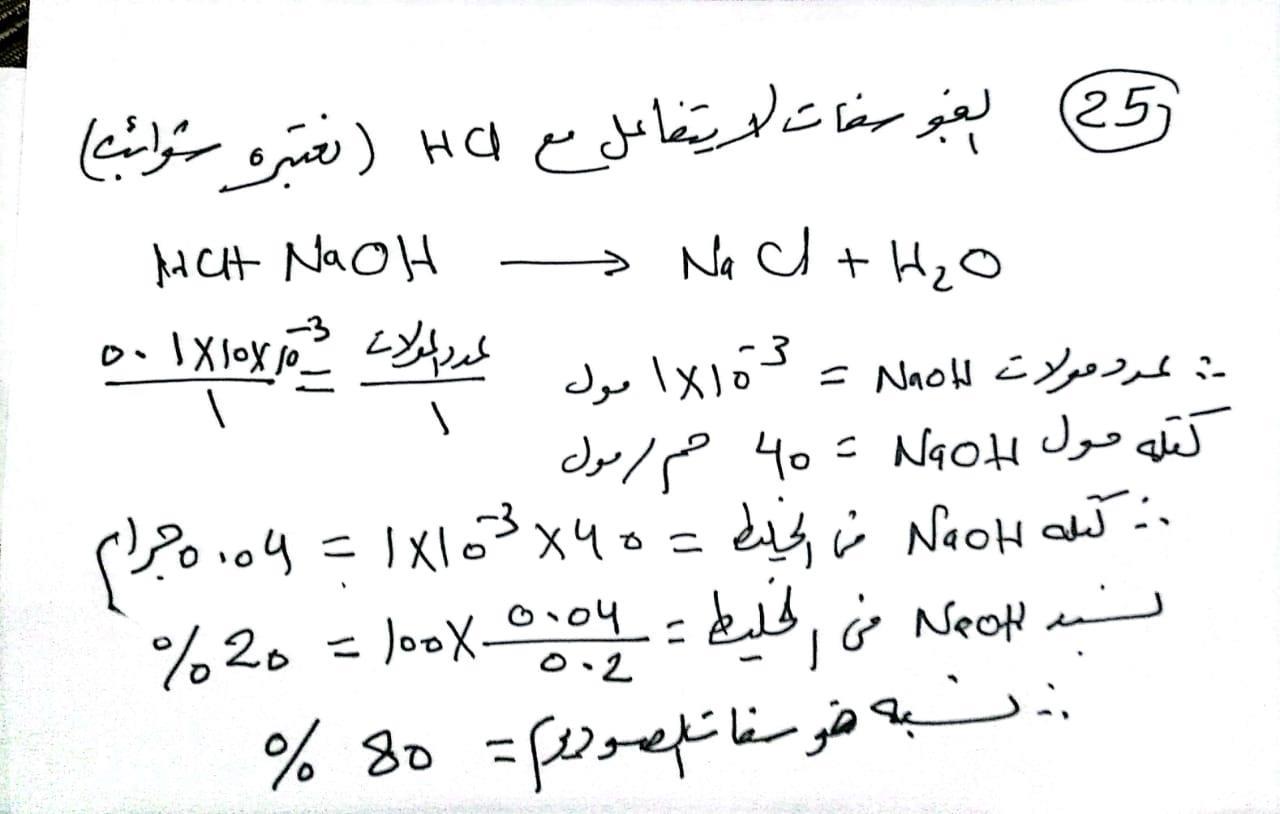 25 الفوسفات لا يتفاعل مع HCl (نعتبره شوائب)
HCl + NaOH ⟶ NaCl + H₂O
0.1X10X10⁻³ / 1 = عدد المولات / 1
∴ عدد مولات NaOH = 1X10⁻³ مول
كتله مول NaOH = 40 جم / مول
∴ كتله NaOH فى الخليط = 1X10⁻³X40 = 0.04 جرام
نسبه NaOH فى الخليط = 0.04 / 0.2 X100 = 20 %
∴ نسبه فوسفات الصوديوم = 80 %